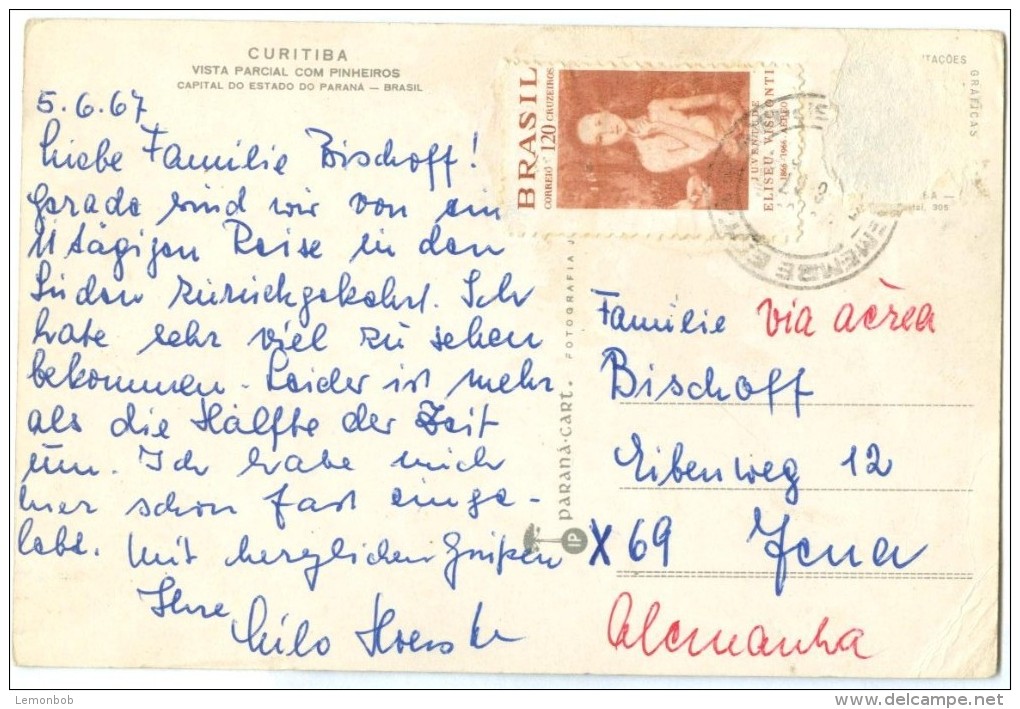 CURITIBA
VISTA PARCIAL COM PINHEIROS
CAPITAL DO ESTADO DO PARANÁ — BRASIL
5.6.67
Liebe Familie Bischoff!
Gerade sind wir von ein
11 tägigen Reise in den
Süden zurückgekehrt. Ich
habe sehr viel zu sehen
bekommen. Leider ist mehr
als die Hälfte der Zeit
um. Ich habe mich
hier schon fast einge-
lebt. Mit herzlichen Grüßen
Ihre
BRASIL
CORREIO 120 CRUZEIROS
JUVENTUDE
ELISEU VISCONTI
1866-1966 AÉREO
TAÇÕES
GRÁFICAS
PARANÁ-CART.
FOTOGRAFIA
IP
Familie via aérea
Bischoff
Eibenweg 12
X 69 Jena
Alemanha
Lemonbob
www.delcampe.net